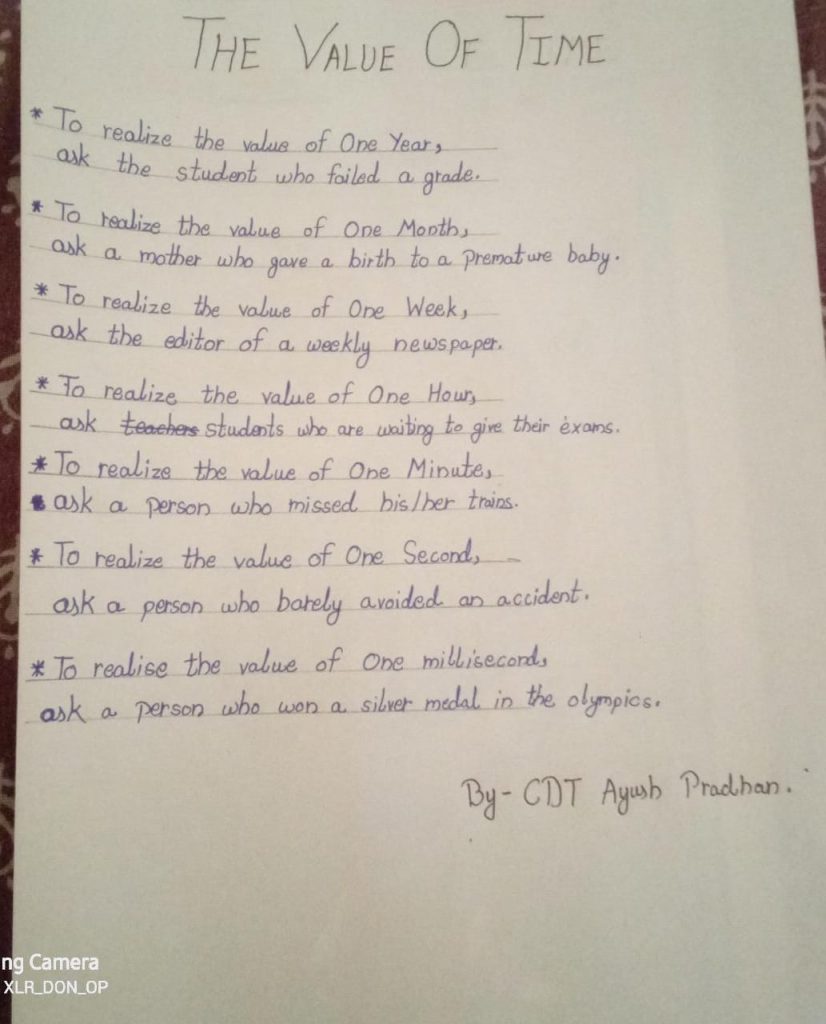 THE VALUE OF TIME
* To realize the value of One Year,
ask the student who failed a grade.
* To realize the value of One Month,
ask a mother who gave a birth to a Premature baby.
* To realize the value of One Week,
ask the editor of a weekly newspaper.
* To realize the value of One Hour,
ask teachers students who are waiting to give their exams.
* To realize the value of One Minute,
ask a person who missed his/her trains.
* To realize the value of One Second,
ask a person who barely avoided an accident.
* To realise the value of One millisecond,
ask a person who won a silver medal in the olympics.
By- CDT Ayush Pradhan.
ng Camera
XLR_DON_OP